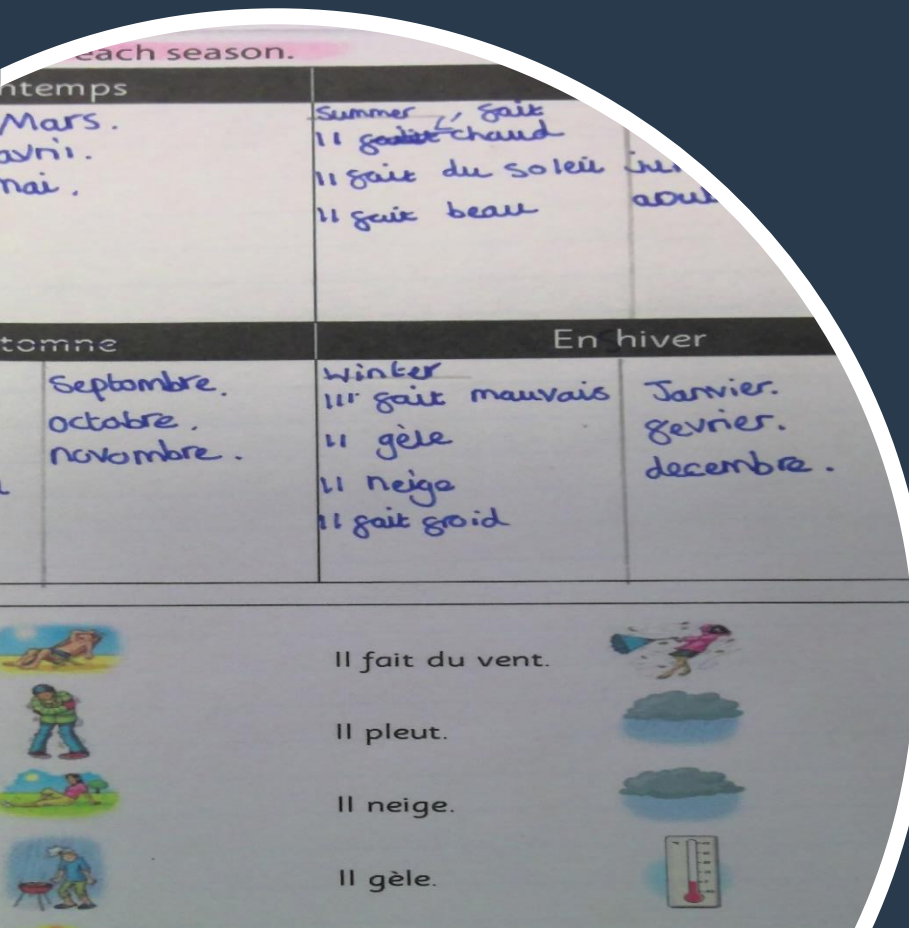 each season.
ntemps
Mars.
avril.
mai.
Summer fait
Il chaud
Il fait du soleil
Il fait beau
aout
tomne
En hiver
Septombre.
octobre.
novombre.
winter
Il fait mauvais
Il gèle
Il neige
Il fait froid
Janvier.
fevrier.
decembre.
Il fait du vent.
Il pleut.
Il neige.
Il gèle.